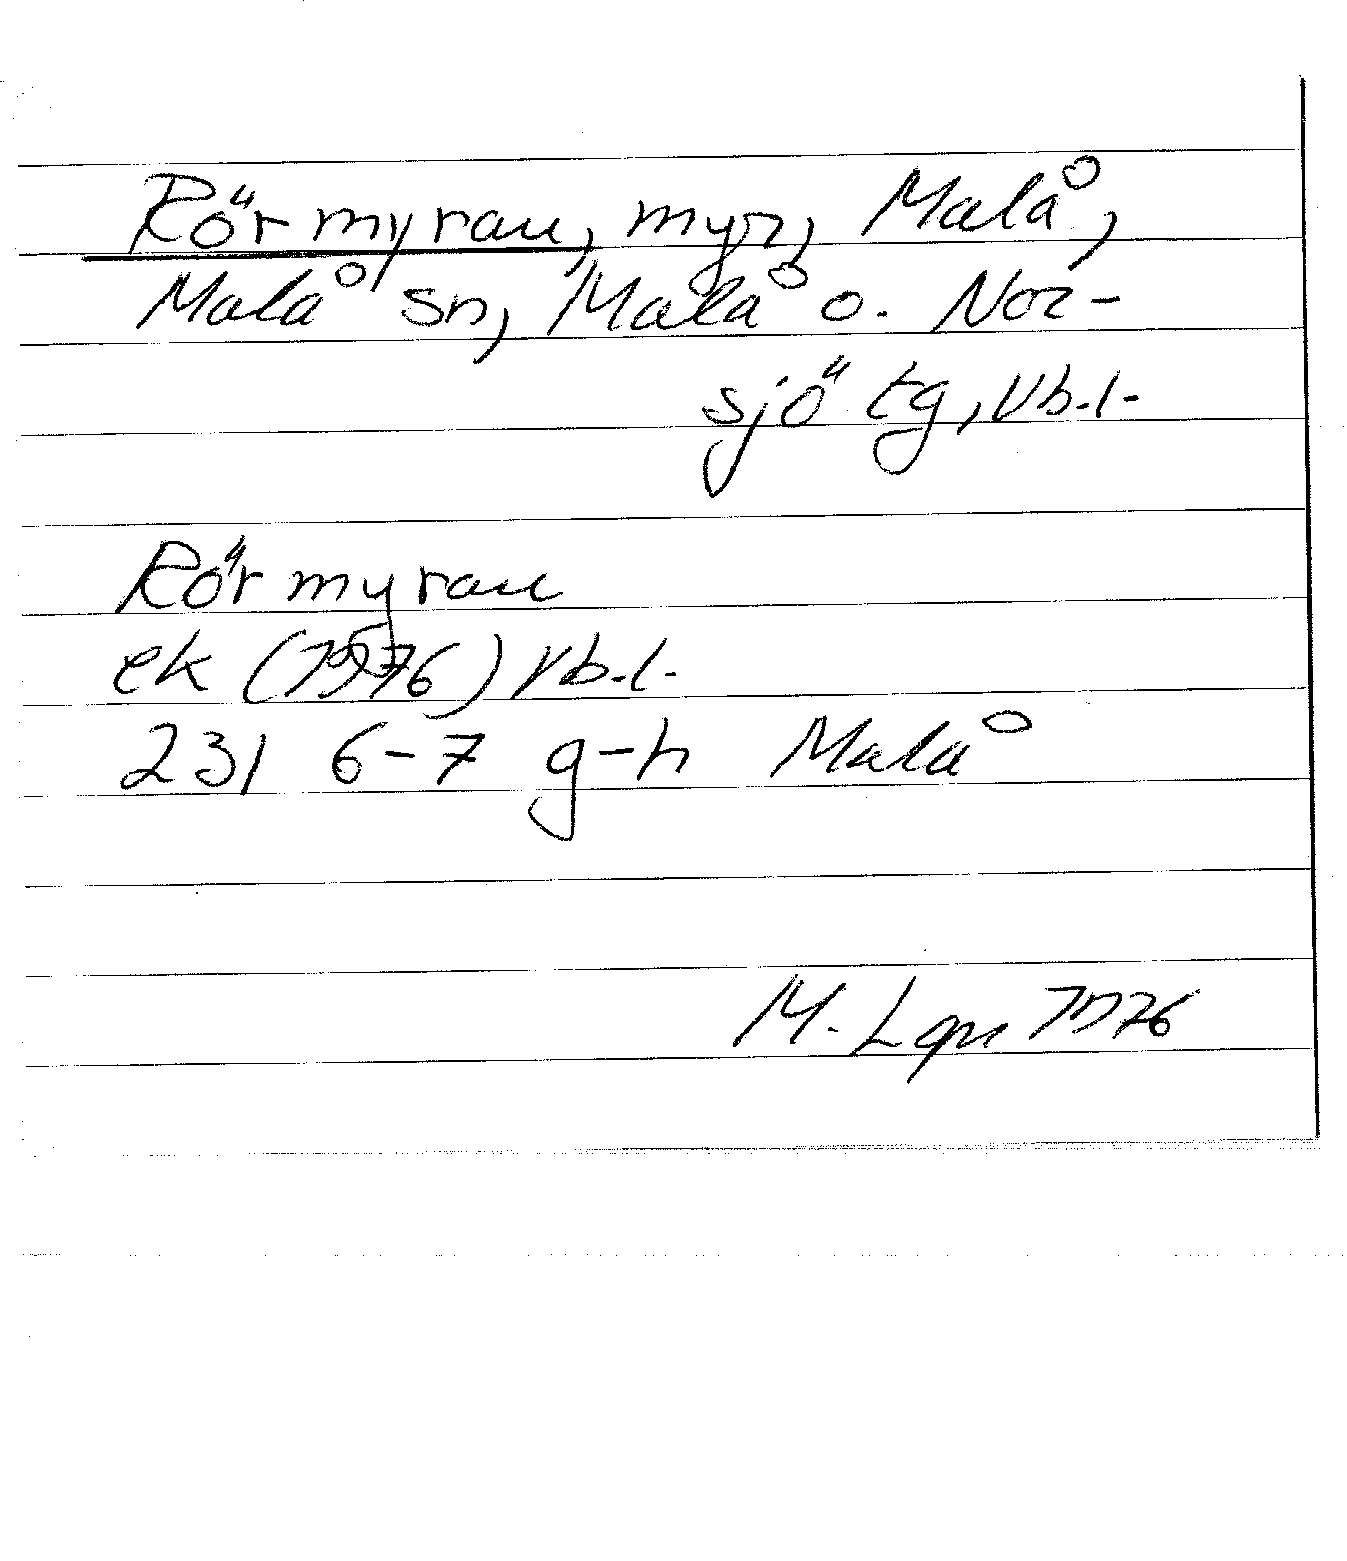 Rörmyran, myr, Malå,
Malå sn, Malå o. Nor-
sjö tg, Vb.l.
Rörmyran
ek (1976) Vb.l.
231 6-7 g-h Malå
M. Lgn 1976